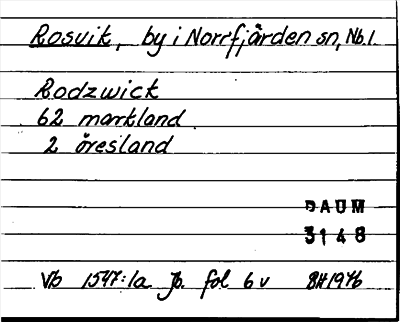 Rosvik, by i Norrfjärden sn, Nb.l.
Rodzwick
62 markland
2 öresland
DAUM
3148
Vb 1547:1a Jb. fol 6 v BH 1976